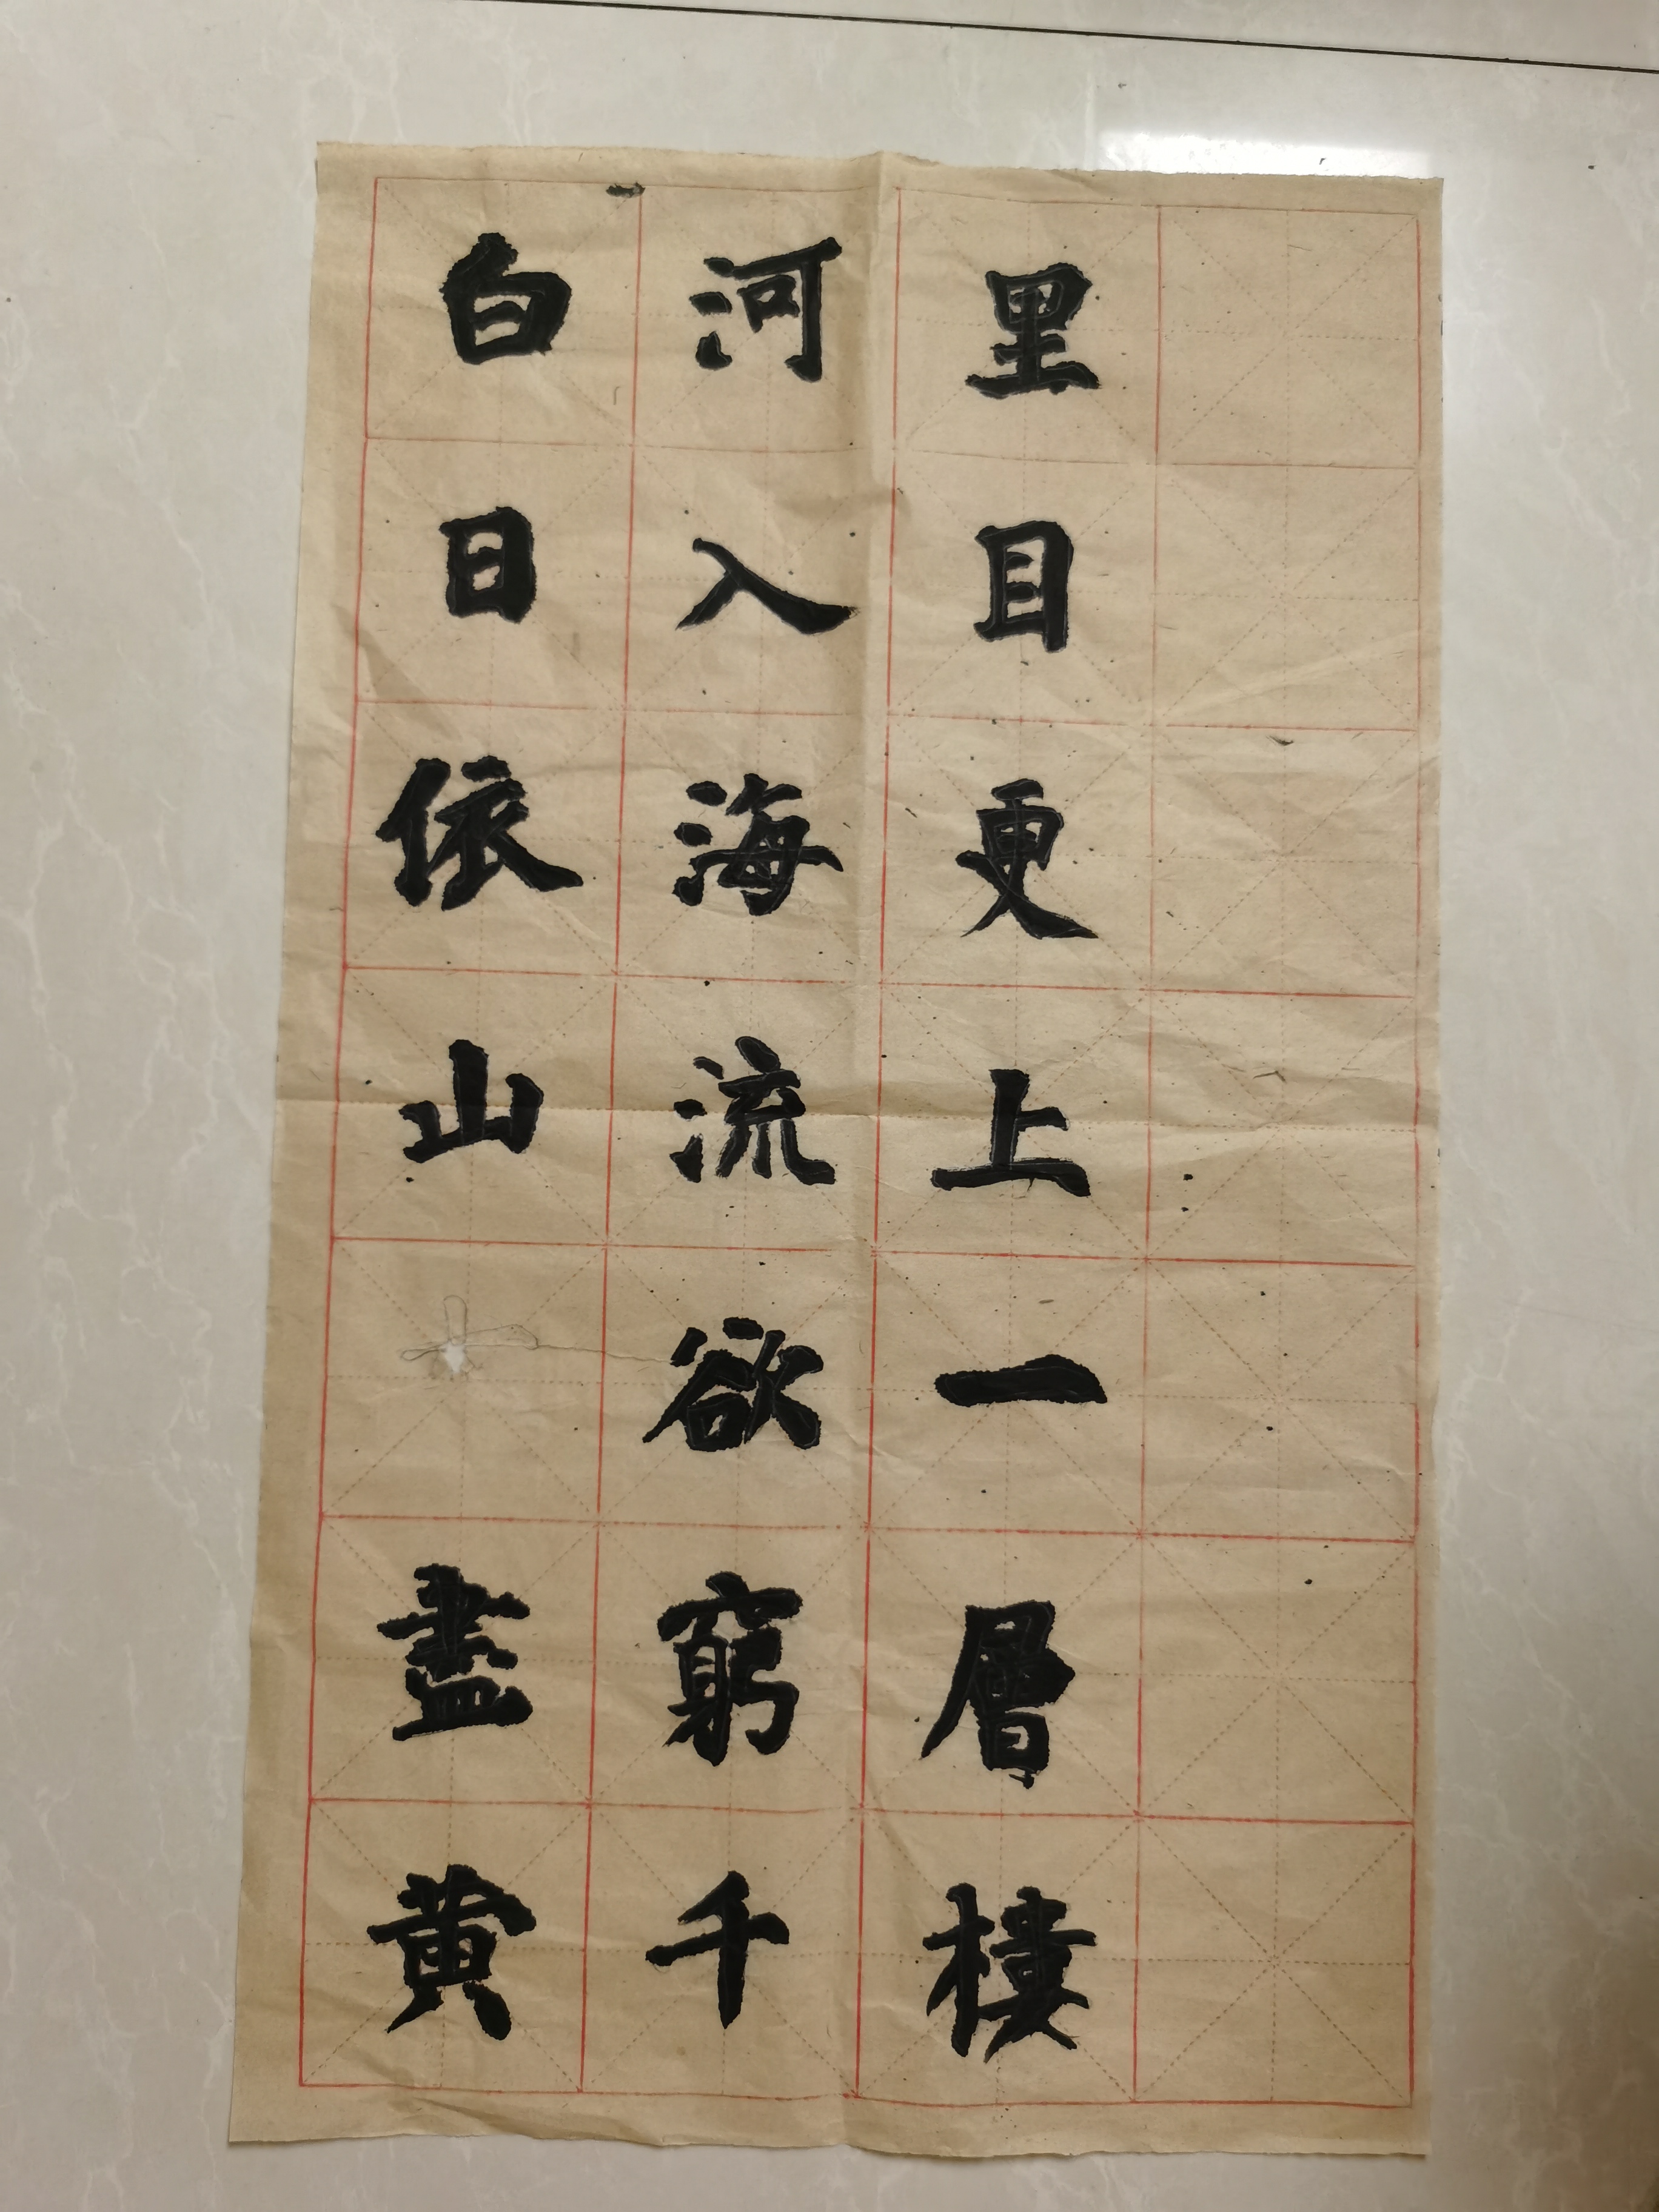 白日依山盡黄
河入海流欲窮千
里目更上一層樓